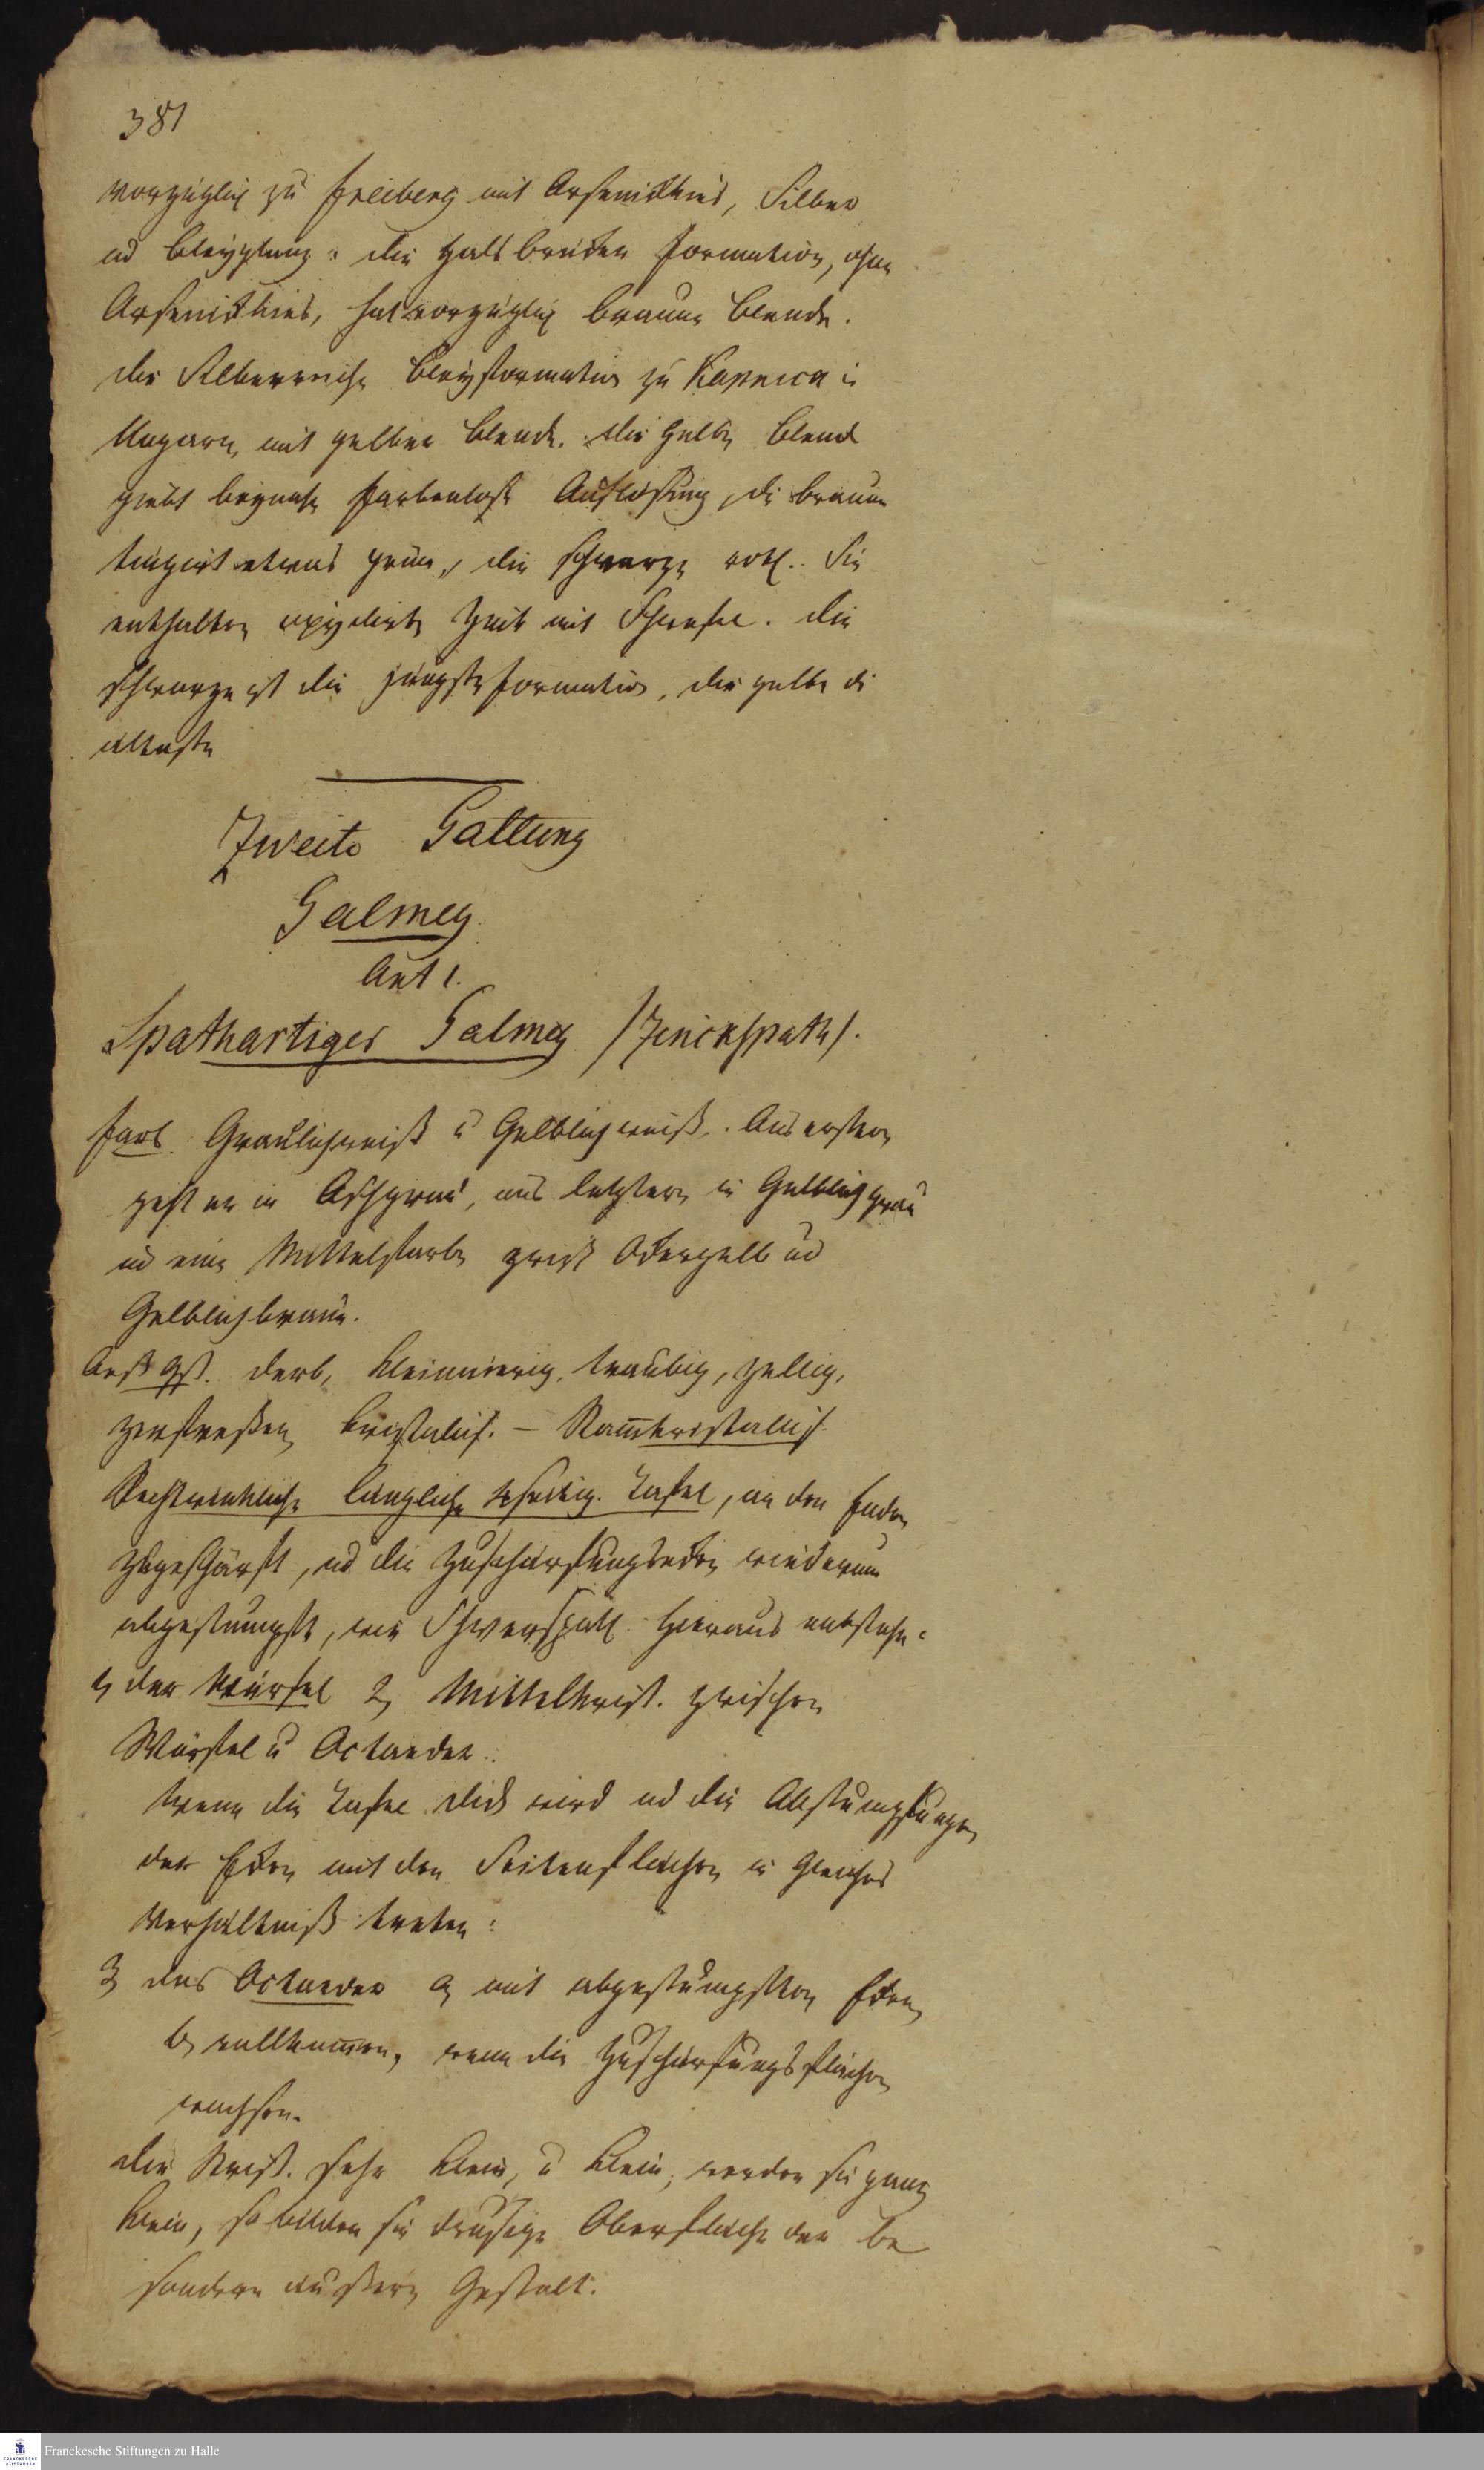 381
vorzüglich zu Freiberg mit Arsenickkies, Silber
ud Bleyglanz: die Halsbrücker Formation, ohne
Arsenickkies, hat vorzüglich braune Blende.
die Silberreiche Bleyformation zu Kapnick in
Ungarn, mit gelber Blende. die gelbe Blende
giebt beynahe farbenlose Auflösung, die braune
tingirt etwas grün, die schwarze roth. Sie
enthalten oxydirtes Zink mit Schwefel. die
schwarze ist die jüngste Formation, die gelbe die
älteste
Zweite Gattung
Galmey
Art 1.
Spathartiger Galmey /Zinckspath/.
Farb. Graulichweiß u Gelblichweiß. Aus ersterm
geht er in Aschgrau, aus letzterm in Gelblichgrau
ud eine Mittelfarbe zwisch Ockergelb ud
Gelblichbraun.
Aeß Gst. derb, kleinnierig, traubig, zellig,
zerfreßen, kristalis. – Stam̅kristallis.
Rechtwinkliche längliche 4seitig. Tafel, an den Enden
zugeschärft, ud die Zuschärfungsecken wiederum
abgestumpft, wie Schwerspath. Hieraus entstehen:
1, der Würfel 2, Mittelkrist. zwischen
Würfel u Octaeder.
Wenn die Tafel dick wird ud die Abstumpfungen
der Ecken mit den Seitenflächen in gleiches
Verhältniß treten:
3, das Octaeder a, mit abgestumpften Ecken,
b, vollkom̅en, wenn die Zuschärfungsflächen
wachsen.
die Krist. sehr klein, u klein, werden sie ganz
klein, so bilden sie drusige Oberfläche der be
sondern äußern Gestalt.
Franckesche Stiftungen zu Halle